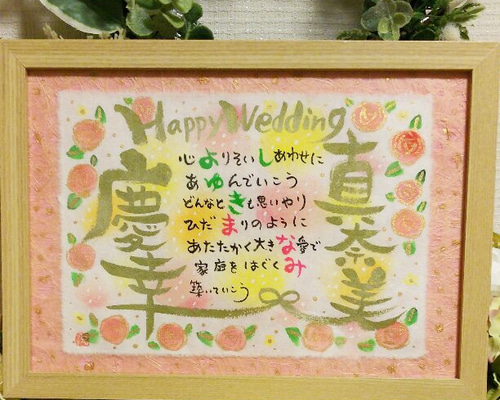 Happy Wedding
慶幸
心よりそいしあわせに
あゆんでいこう
どんなときも思いやり
ひだまりのように
あたたかく大きな愛で
家庭をはぐくみ
築いていこう
真奈美